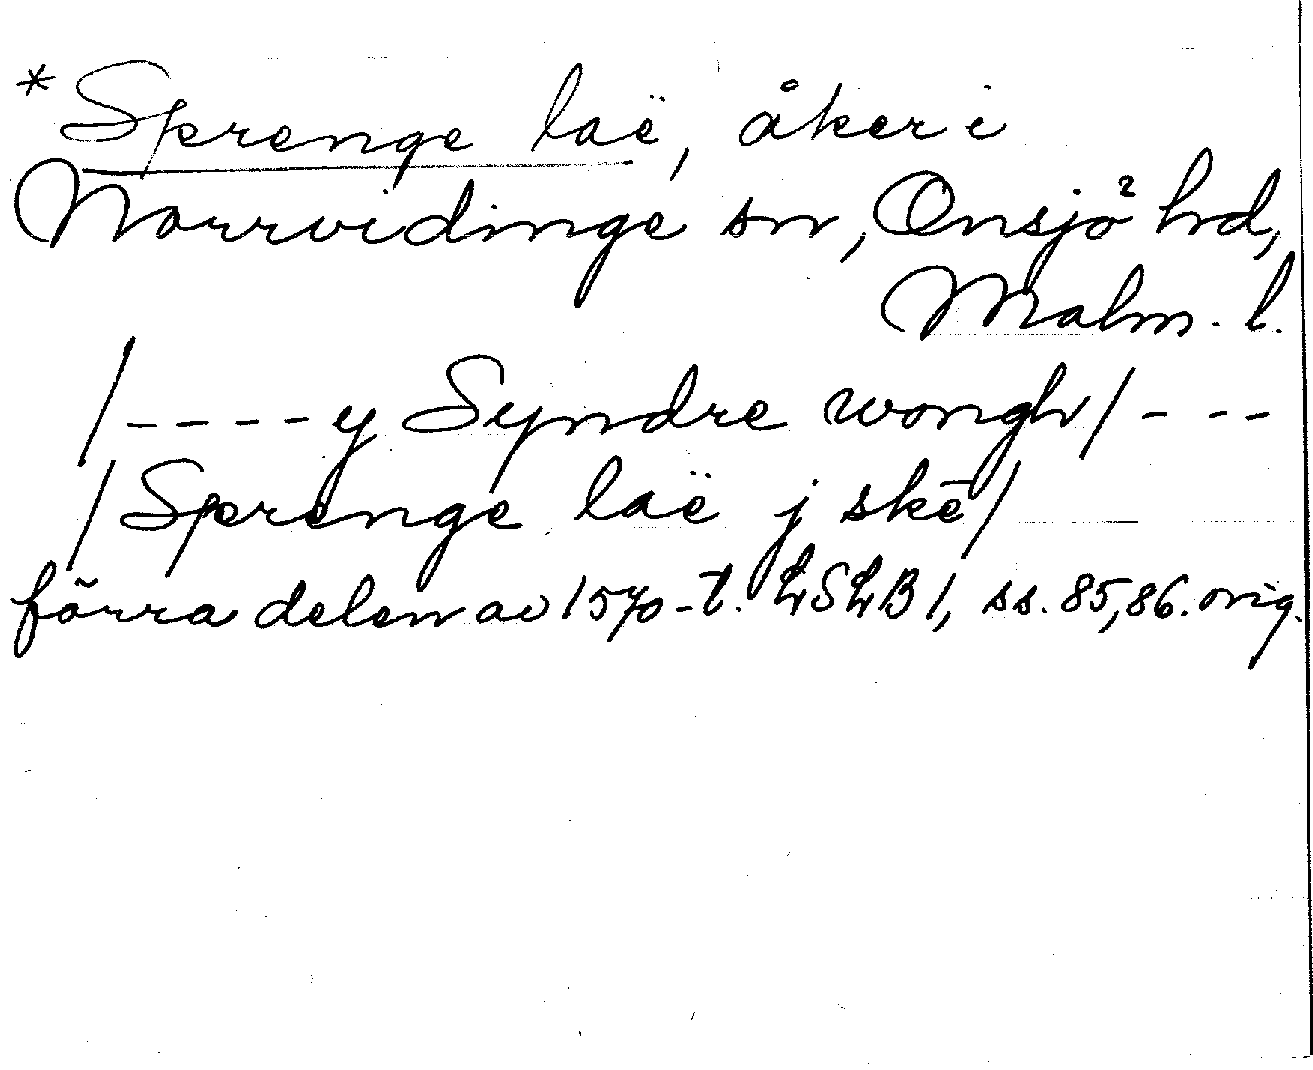 *Sprenge laë, åker i
Norrvidinge sn, Onsjö hd,
Malm. l.
/----y Syndre wongh/---
/Sprenge laë j skē/
förra delen av 1570-t. LSLB 1, ss. 85, 86. orig.